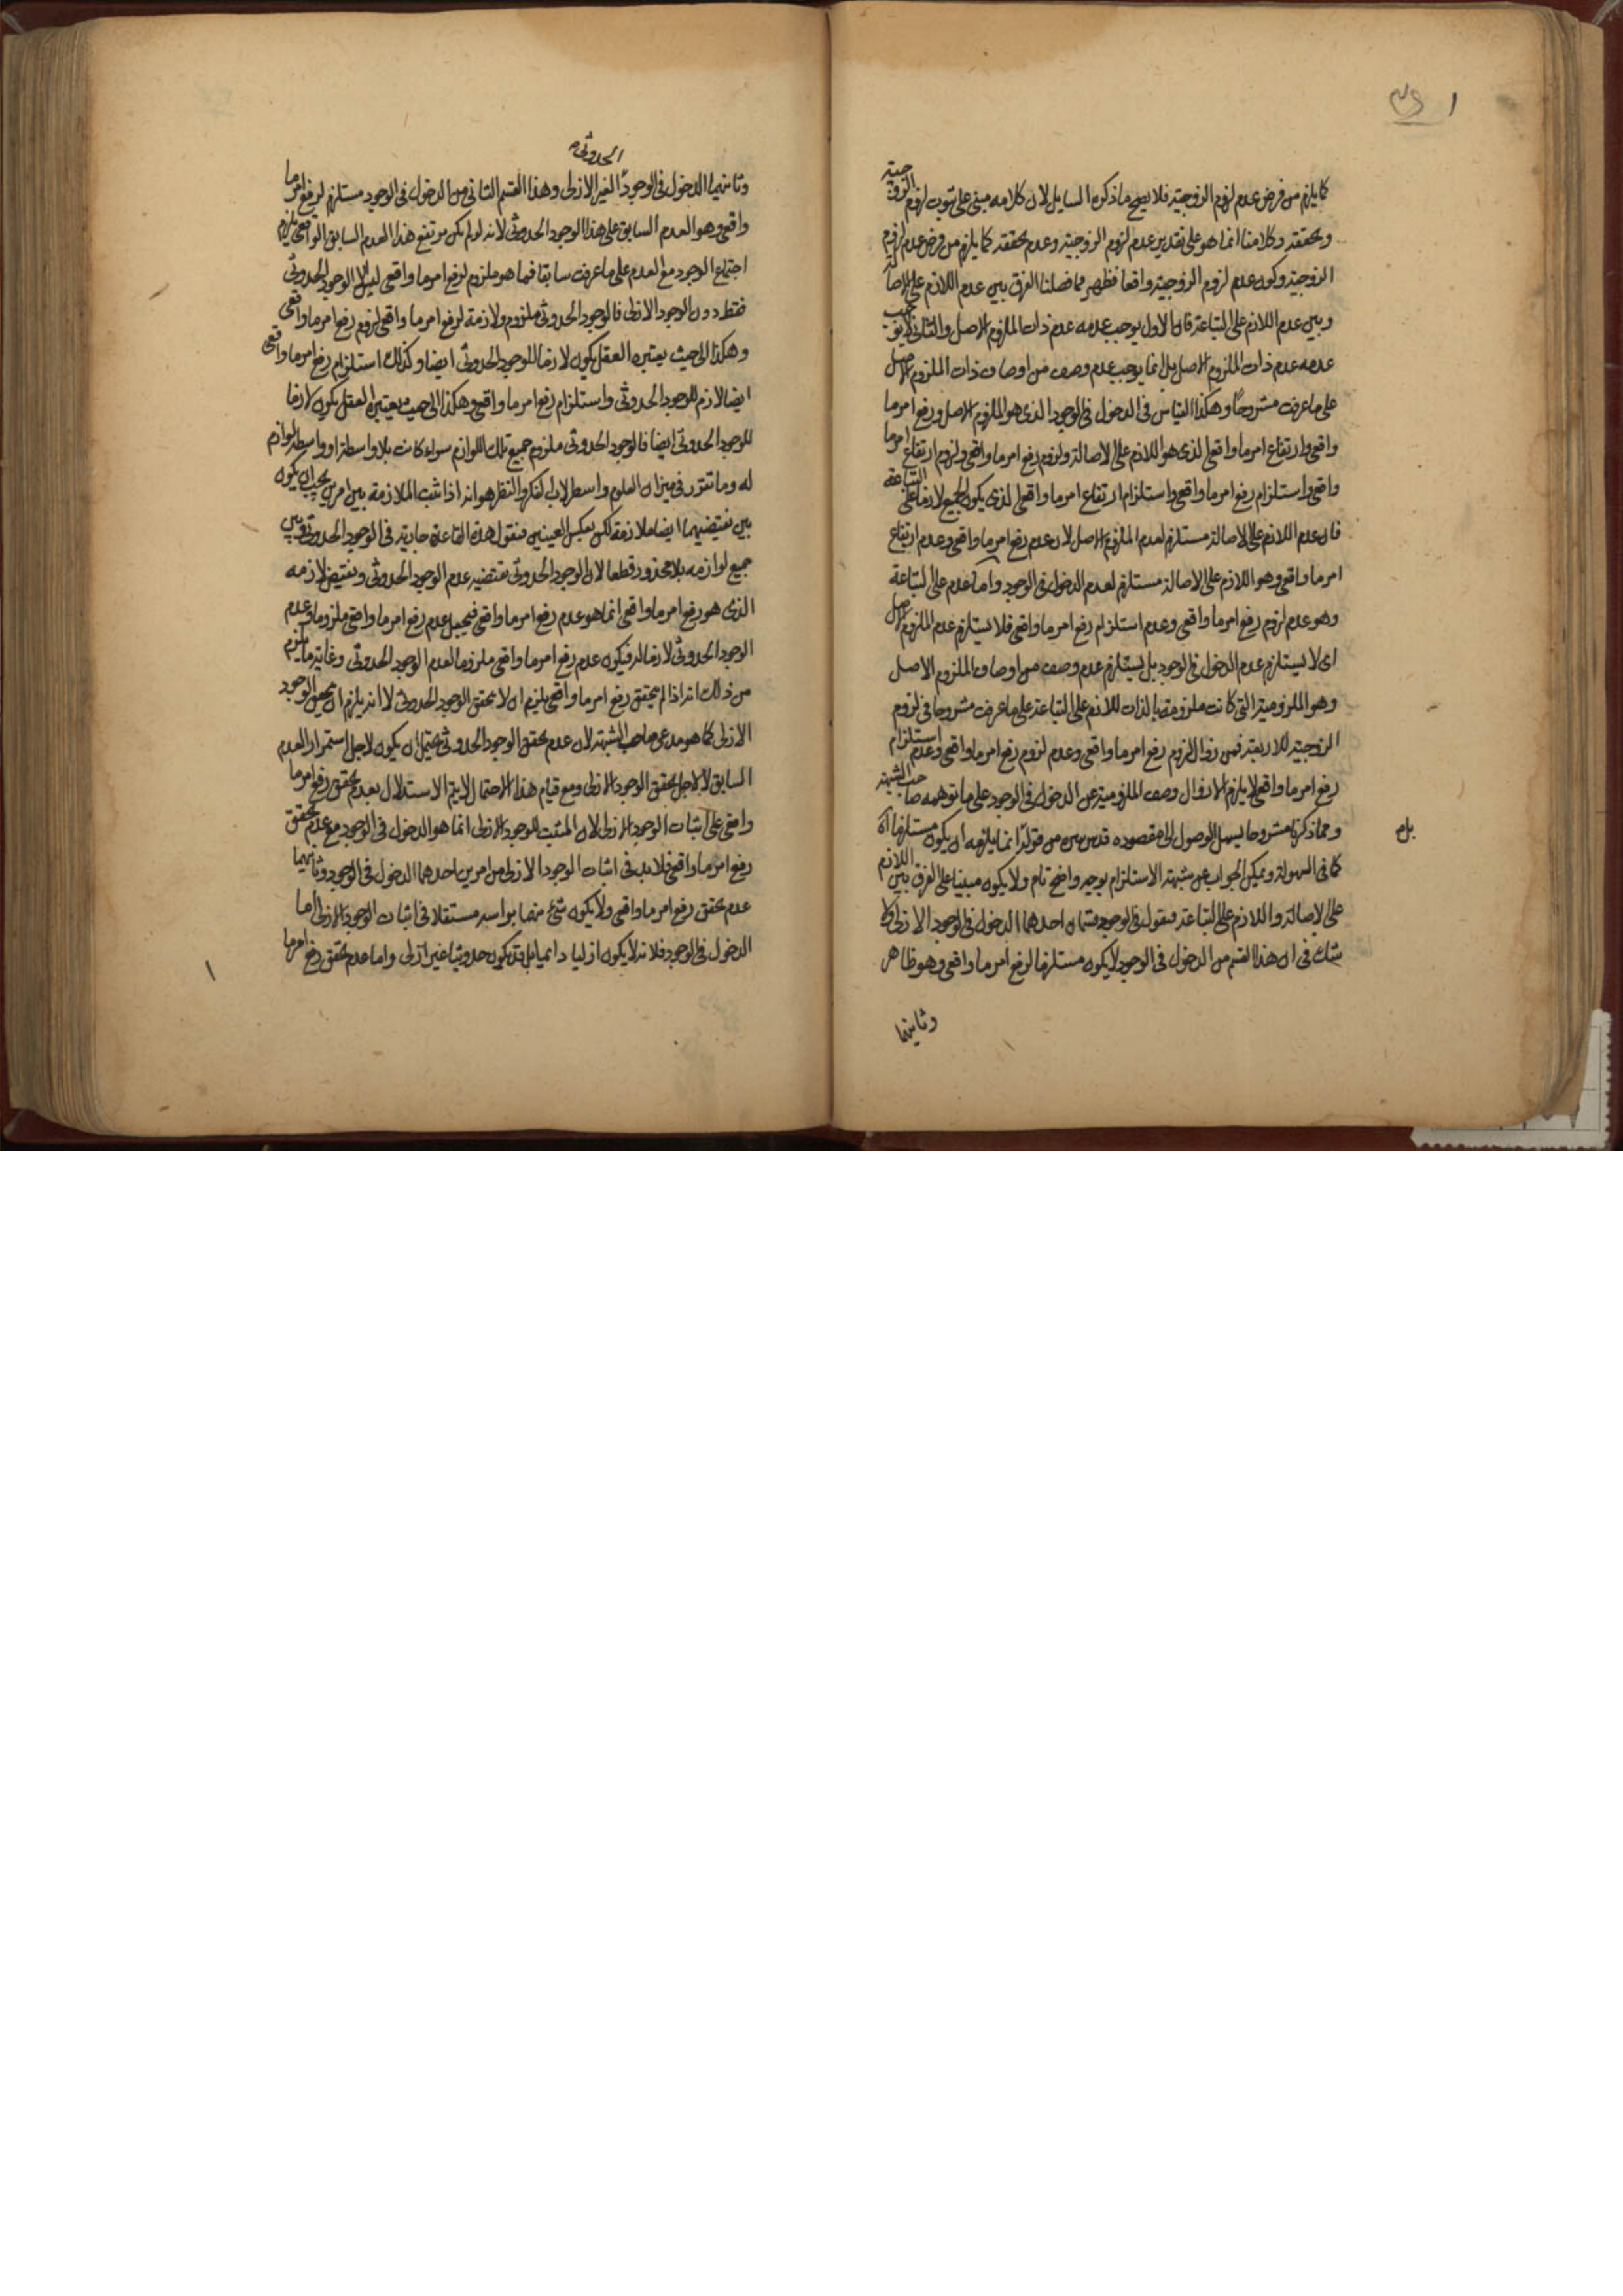 كما يلزم من فرض عدم لزوم الزوجية فلا يصح ما ذكره السايل لان كلامه مبنى على ثبوت لزوم الزوجية
وتحققه وكلامنا انما هو على تقدير عدم لزوم الزوجية وعدم تحققه كما يلزم من فرض عدم لزوم
الزوجية وكون عدم لزوم الزوجية واقعا فظهر مما فصلنا الفرق بين عدم اللازم على الاصالة
وبين عدم اللازم على التباعة فان الاول يوجب عدمه عدم ذات الملزوم الاصل والثانى لا يوجب
عدمه عدم ذات الملزوم الاصل بل انما يوجب عدم وصف من اوصاف ذات الملزوم الاصل
على ما عرفت مشروحا وهكذا القياس فى الدخول فى الوجود الذى هو الملزوم الاصل ورفع امر ما
واقعى وارتفاع امر ما واقعى الذى هو اللازم على الاصالة ولزوم رفع امر ما واقعى ولزوم ارتفاع امر ما
واقعى واستلزام رفع امر ما واقعى واستلزام ارتفاع امر ما واقعى الذى يكون الجميع لازما على التباعة
فان عدم اللازم على الاصالة مستلزم لعدم الملزوم الاصل لان عدم رفع امر ما واقعى وعدم ارتفاع
امر ما واقعى وهو اللازم على الاصالة مستلزم لعدم الدخول فى الوجود واما عدم على التباعة
وهو عدم لزوم رفع امر ما واقعى وعدم استلزام رفع امر ما واقعى فلا يستلزم عدم الملزوم الاصل
اى لا يستلزم عدم الدخول فى الوجود بل يستلزم عدم وصف من اوصاف الملزوم الاصل
وهو الملزومية التى كانت ملزومة بالذات للازم على التباعة على ما عرفت مشروحا فى لزوم
الزوجية للاربعة فمن زوال لزوم رفع امر ما واقعى وعدم لزوم رفع امر ما واقعى وعدم استلزام
رفع امر ما واقعى لا يلزم الا زوال وصف الملزومية عن الدخول فى الوجود على ما توهمه صاحب الشبهة
ومما ذكرنا مشروحا يسهل الوصول الى مقصوده قدس سره من قوله انما يلزمه ان يكون مستلزما اه
كما فى السهولة ويمكن الجواب عن شبهة الاستلزام بوجه واضح تام ولا يكون مبنيا على الفرق بين اللازم
على الاصالة واللازم على التباعة فنقول فى الوجود قسمان احدهما الدخول فى الوجود الازلى ولا
شك فى ان هذا القسم من الدخول فى الوجود لا يكون مستلزما لرفع امر ما واقعى وهو ظاهر
وثانيهما
الحدوثى
وثانيهما الدخول فى الوجود الغير الازلى وهذا القسم الثانى من الدخول فى الوجود مستلزم لرفع امر ما
واقعى وهو العدم السابق على هذا الوجود الحدوثى لانه لو لم يكن مرتفع هذا العدم السابق الواقعى يلزم
اجتماع الوجود مع العدم على ما عرفت سابقا فما هو ملزوم لرفع امر ما واقعى ليس الا الوجود الحدوثى
فقط دون الوجود الازلى فالوجود الحدوثى ملزوم ولازمة لرفع امر ما واقعى لزوم رفع امر ما واقعى
وهكذا الى حيث يعتبره العقل يكون لازما للوجود الحدوثى ايضا وكذلك استلزام رفع امر ما واقعى
ايضا لازم للوجود الحدوثى واستلزام رفع امر ما واقعى وهكذا الى حيث يعتبره العقل يكون لازما
للوجود الحدوثى ايضا فالوجود الحدوثى ملزوم جميع تلك اللوازم سواء كانت بلا واسطة او واسطة لوازم
له وما تقرر فى ميزان العلوم واسطرلاب الفكر والنظر هو انه اذا ثبت الملازمة بين امرين يجب ان يكون
بين نقيضيهما ايضا ملازمة لكن بعكس العينين فنقول هذه القاعدة جارية فى الوجود الحدوثى وبين
جميع لوازمه بلا محذور قطعا لان الوجود الحدوثى نقيضه عدم الوجود الحدوثى ونقيض لازمه
الذى هو رفع امر ما واقعى انما هو عدم رفع امر ما واقعى فيجعل عدم رفع امر ما واقعى ملزوما وعدم
الوجود الحدوثى لازما له فيكون عدم رفع امر ما واقعى ملزوما لعدم الوجود الحدوثى وغاية ما يلزم
من ذلك انه اذا لم يتحقق رفع امر ما واقعى يلزم ان لا يتحقق الوجود الحدوثى لا انه يلزم ان يتحقق الوجود
الازلى كما هو مدعى صاحب الشبهة لان عدم تحقق الوجود الحدوثى يحتمل ان يكون لاجل استمرار العدم
السابق لا لاجل تحقق الوجود الازلى ومع قيام هذا الاحتمال لا يتم الاستدلال بعدم تحقق رفع امر ما
واقعى على اثبات الوجود الازلى لان المثبت للوجود الازلى انما هو الدخول فى الوجود مع عدم تحقق
رفع امر ما واقعى فلا بد فى اثبات الوجود الازلى من امرين احدهما الدخول فى الوجود وثانيهما
عدم تحقق رفع امر ما واقعى ولا يكون شئ منهما براسه مستقلا فى اثبات الوجود الازلى اما
الدخول فى الوجود فلانه لا يكون ازليا دائميا بل قد يكون حدوثيا غير ازلى واما عدم تحقق رفع امر ما